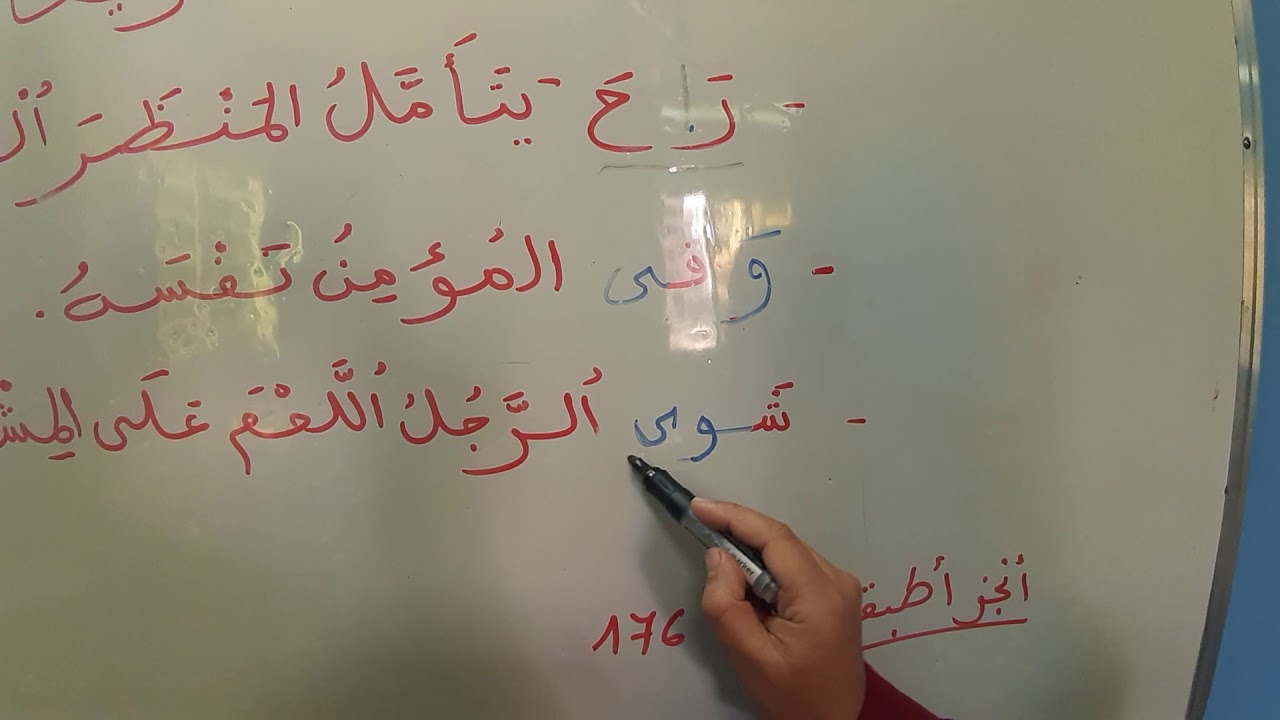 - رَاحَ يَتَأَمَّلُ المَنْظَرَ
- وَقَى المُؤْمِنُ نَفْسَهُ.
- شَوى ٱلرَّجُلُ ٱللَّحْمَ عَلَى
أنجز أطبق 176